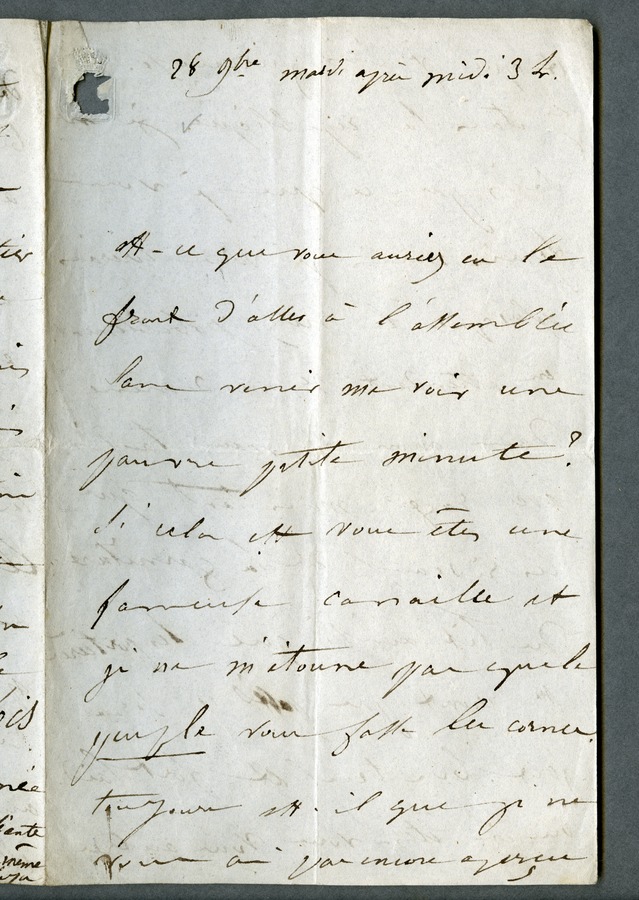 28 9bre mardi après midi 3 h.
est-ce que vous auriez eu le
front d'aller à l'assemblée
sans venir me voir une
pauvre petite minute?
Si cela est vous êtes une
fameuse canaille et
je ne m'étonne pas que le
peuple vous fasse les cornes.
toujours est-il que je ne
vous ai pas encore aperçu
tier
ois
même